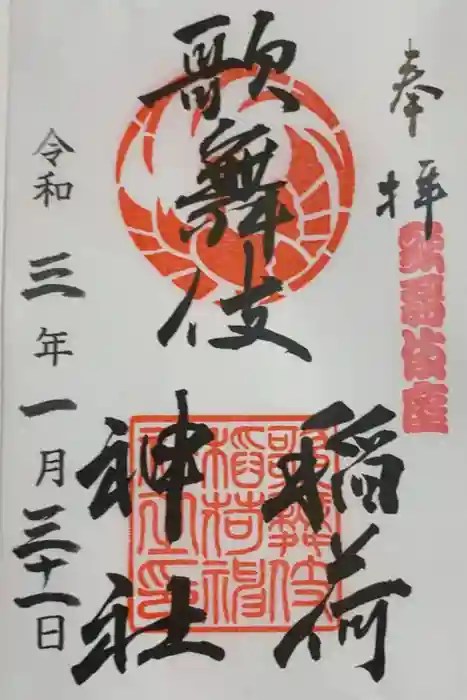 奉拝
歌舞伎座
歌舞伎
稲荷
神社
令和三年一月三十一日